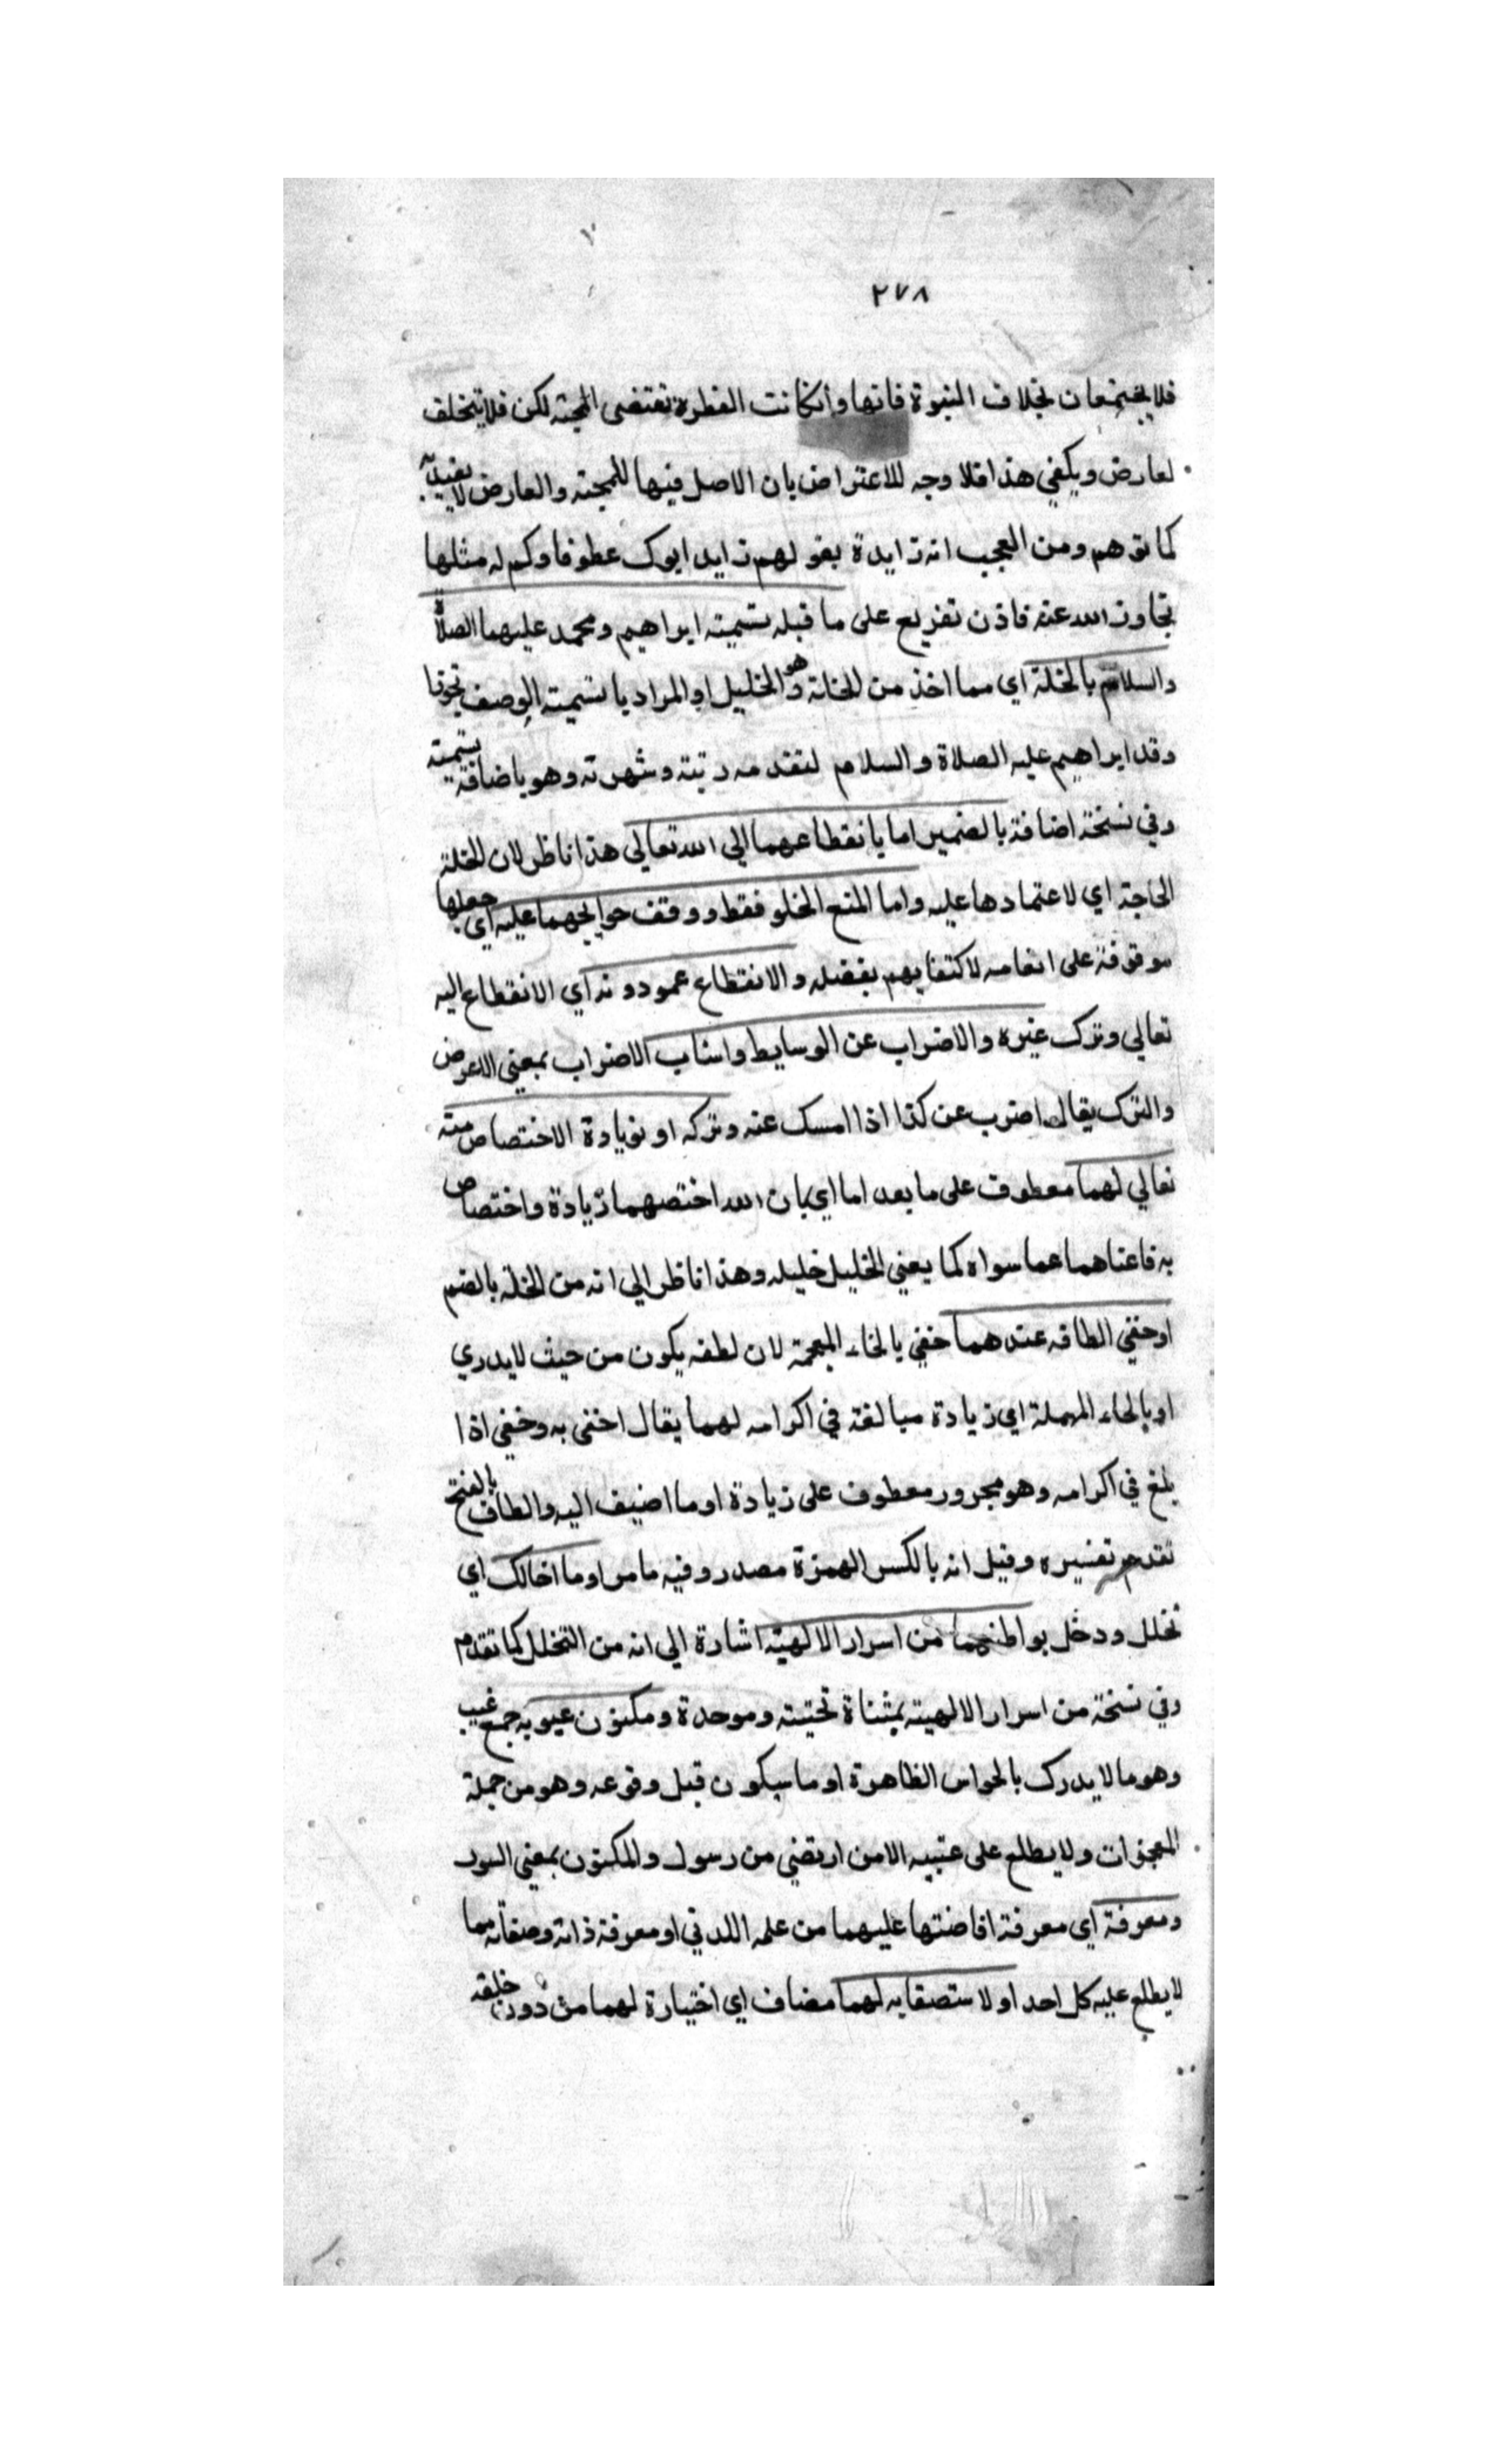 ٢٧٨
فلا يجتمعان بخلاف البنوة فانها وانكانت الفطرة تقتضى المحبة لكن فلا يتخلف
لعارض ويكفي هذا فلا وجه للاعتراض بان الاصل فيها للمحبة والعارض لا يفيد
كما توهم ومن العجب انه زايدة بقولهم زايد ابوك عطوفا وكم له مثلها
تجاوز الله عنه فاذن تفريع على ما قبله تسمية ابراهيم ومحمد عليهما الصلاة
والسلام بالخلة اي مما اخذ من الخلة وهو الخليل او المراد بالتسمية الوصف تجوزا
وقد ابراهيم عليه الصلاة والسلام لتقدمه رتبته وشهرته وهو باضافة تسمية
وفي نسخة اضافة بالضمير اما بانقطاعهما الي الله تعالي هذا ناظر لان الخلة
الحاجة اي لاعتمادها عليه واما المنع الخلو فقط ووقف حوايجهما عليه اي جعلها
موقوفة على انعامه لاكتفايهم بفضله والانقطاع عمن دونه اي الانقطاع اليه
تعالي وترك غيره والاضراب عن الوسايط واسباب الاضراب بمعني الاعرض
والترك يقال اضرب عن كذا اذا امسك عنه وتركه او بزيادة الاختصاص منه
تعالي لهما معطوف على ما بعد اما اي بان الله اختصهما زيادة واختصاص
به فاغناهما عما سواه كما يغني الخليل خليله وهذا ناظر الي انه من الخلة بالضم
او خفي الطافه عندهما خفي بالخاء المعجمة لان لطفه يكون من حيث لا يدري
او بالحاء المهملة اي زيادة مبالغة في اكرامه لهما يقال احفى به وحفي اذا
بلغ في اكرامه وهو مجرور معطوف على زيادة او ما اضيف اليه والطاف بالفتح
تقدم تفسيره وقيل انه بالكسر الهمزة مصدر وفيه ما مر او ما اخالك اي
تخلل ودخل بواطنهما من اسرار الالهية اشارة الي انه من التخلل كما تقدم
وفي نسخة من اسرار الالهية بمثناة تحتية وموحدة ومكنون غيوبه جمع غيب
وهو ما لا يدرك بالحواس الظاهرة او ما سيكون قبل وقوعه وهو من جملة
المعجزات ولا يطلع على غيبه الا من ارتضي من رسول والمكنون بمعني
ومعرفة اي معرفة افاضتها عليهما من علمه اللدني او معرفة ذاته وصفاته مما
لا يطلع عليه كل احد او لاستصفايه لهما مضاف اي اختيارة لهما من دون خلقه